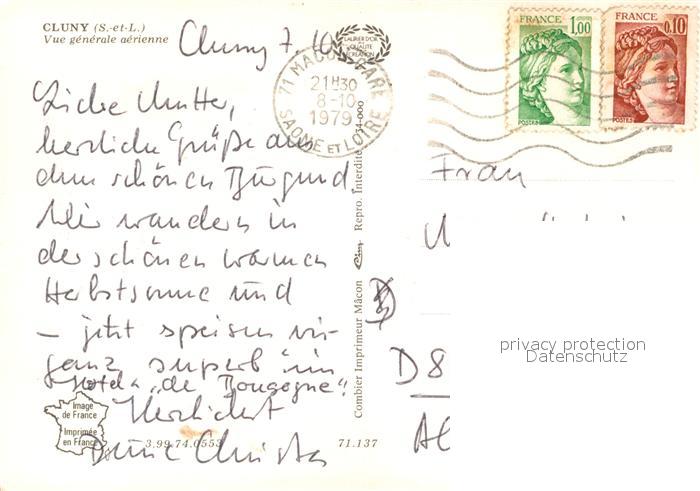 CLUNY (S.-et-L.)
Vue générale aérienne
Cluny 7. 10
LAURIER D'OR
QUALITÉ
CRÉATION
71 MACON GARE
21H30
8-10
1979
SAONE ET LOIRE
FRANCE
1,00
POSTES
FRANCE
0,10
POSTES
Liebe Mutter,
herzliche Grüße aus
dem schönen Burgund.
Wir wandern in
der schönen warmen
Herbstsonne und
– jetzt speisen wir
ganz superb im
Hotel "de Bourgogne".
Herzlichst
Deine Christa
Frau
D 8
Combier Imprimeur Mâcon
Repro. Interdite
34-000
Image
de France
Imprimée
en France
3.99.74.0553
71.137
privacy protection
Datenschutz